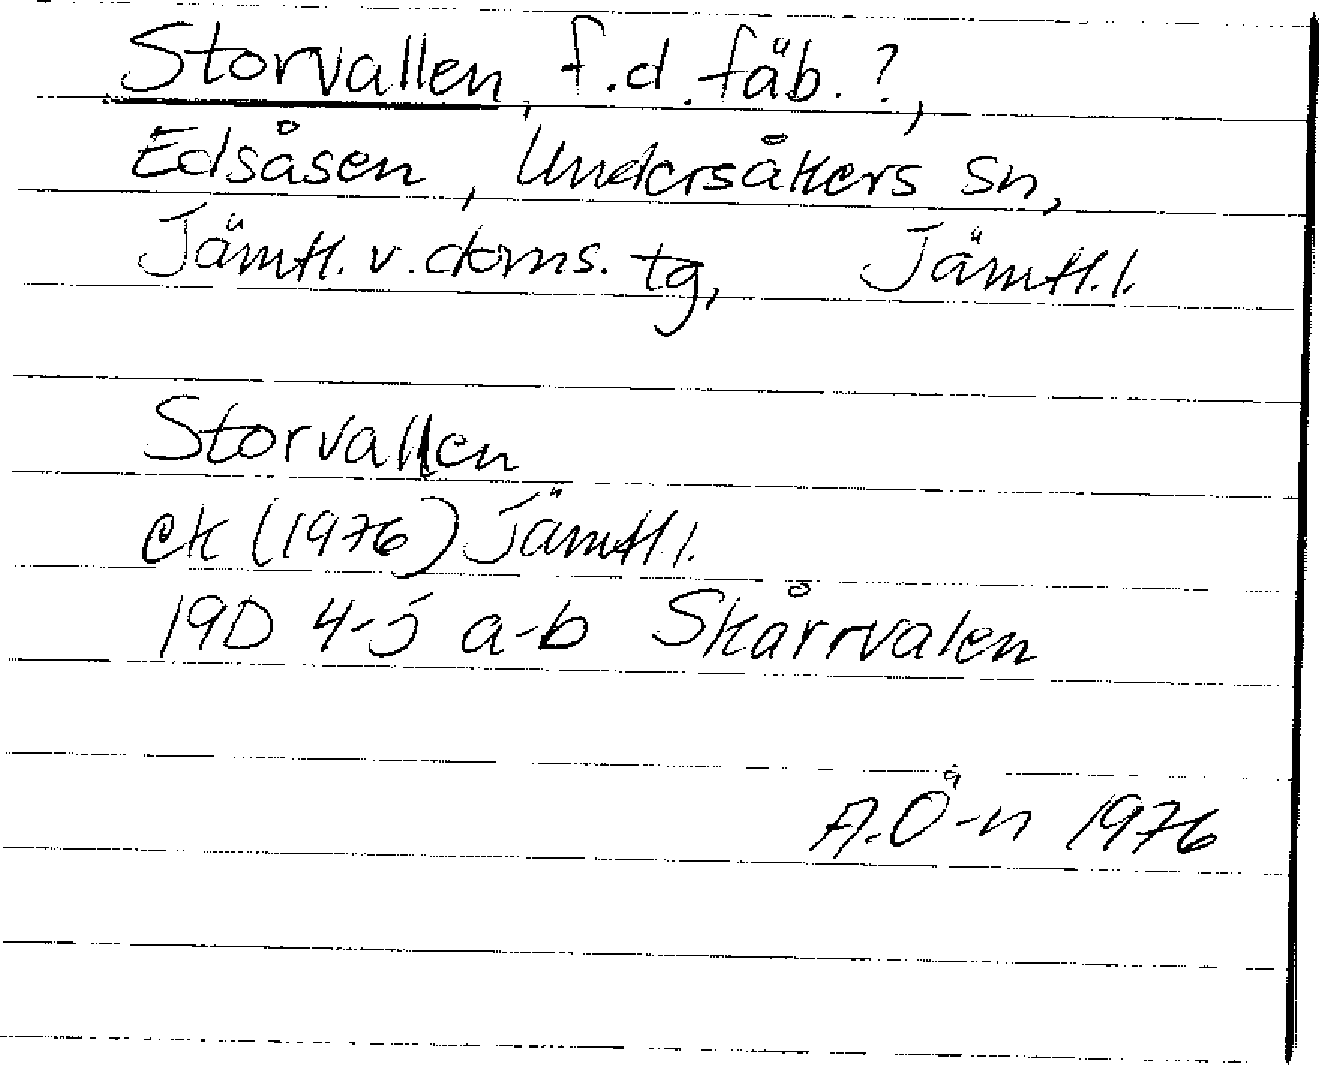 Storvallen, f.d. fäb. ?,
Edsåsen, Undersåkers sn,
Jämtl. v. doms. tg, Jämtl. l.
Storvallen
ek (1976) Jämtl. l.
19D 4-5 a-b Skårvalen
A. Ö-n 1976